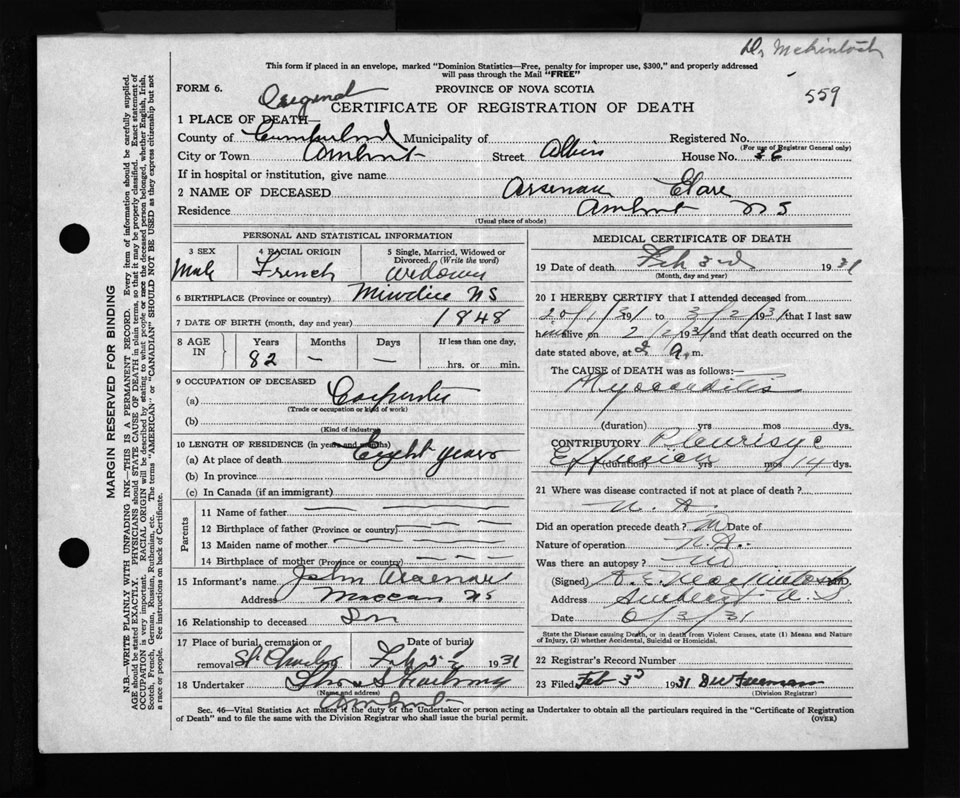 Dr McKintosh
This form if placed in an envelope, marked "Dominion Statistics—Free, penalty for improper use, $300," and properly addressed
will pass through the Mail "FREE"
FORM 6.
PROVINCE OF NOVA SCOTIA
559
Original
CERTIFICATE OF REGISTRATION OF DEATH
1 PLACE OF DEATH—
County of Cumberland Municipality of Registered No.
(For use of Registrar General only)
City or Town Amherst Street Albion House No. 56
If in hospital or institution, give name
2 NAME OF DECEASED Arsenau
Residence Amherst NS
(Usual place of abode)
PERSONAL AND STATISTICAL INFORMATION
3 SEX 4 RACIAL ORIGIN 5 Single, Married, Widowed or
Divorced. (Write the word)
Male French Widower
6 BIRTHPLACE (Province or country) Minudie NS
7 DATE OF BIRTH (month, day and year) 1848
8 AGE IN Years Months Days If less than one day,
82 — — hrs. or min.
9 OCCUPATION OF DECEASED
(a) Carpenter
(Trade or occupation or kind of work)
(b)
(Kind of industry)
10 LENGTH OF RESIDENCE (in years and months)
(a) At place of death Eight years
(b) In province
(c) In Canada (if an immigrant)
Parents
11 Name of father
12 Birthplace of father (Province or country)
13 Maiden name of mother
14 Birthplace of mother (Province or country)
15 Informant's name John Arsenau
Address Maccan NS
16 Relationship to deceased Son
17 Place of burial, cremation or Date of burial
removal St Charles Feb 5 1931
18 Undertaker
(Name and address)
Amherst
MEDICAL CERTIFICATE OF DEATH
19 Date of death Feb 3rd 1931
(Month, day and year)
20 I HEREBY CERTIFY that I attended deceased from
20/1/31 to 3/2/1931 that I last saw
him alive on 2/2/1931 and that death occurred on the
date stated above, at a.m.
The CAUSE of DEATH was as follows:—
Myocarditis
(duration) yrs mos dys.
CONTRIBUTORY Pleurisy c
Effusion (duration) yrs mos 14 dys.
21 Where was disease contracted if not at place of death?
N. A.
Did an operation precede death? No Date of
Nature of operation N.A.
Was there an autopsy? No
(Signed) M.D.
Address Amherst N.S
Date 6/3/31
State the Disease causing Death, or in death from Violent Causes, state (1) Means and Nature
of Injury, (2) whether Accidental, Suicidal or Homicidal.
22 Registrar's Record Number
23 Filed Feb 3d 1931
(Division Registrar)
Sec. 46—Vital Statistics Act makes it the duty of the Undertaker or person acting as Undertaker to obtain all the particulars required in the "Certificate of Registration
of Death" and to file the same with the Division Registrar who shall issue the burial permit.
(OVER)
MARGIN RESERVED FOR BINDING
N.B.—WRITE PLAINLY WITH UNFADING INK—THIS IS A PERMANENT RECORD. Every item of information should be carefully supplied.
AGE should be stated EXACTLY. PHYSICIANS should STATE CAUSE OF DEATH in plain terms, so that it may be properly classified. Exact statement of
OCCUPATION is very important. RACIAL ORIGIN will be described by stating to what people or race the deceased person belonged, whether English, Irish,
Scotch, French, German, Russian, Ruthenian, etc. The terms "AMERICAN" or "CANADIAN" SHOULD NOT BE USED as they express citizenship but not
a race or people. See instructions on back of Certificate.